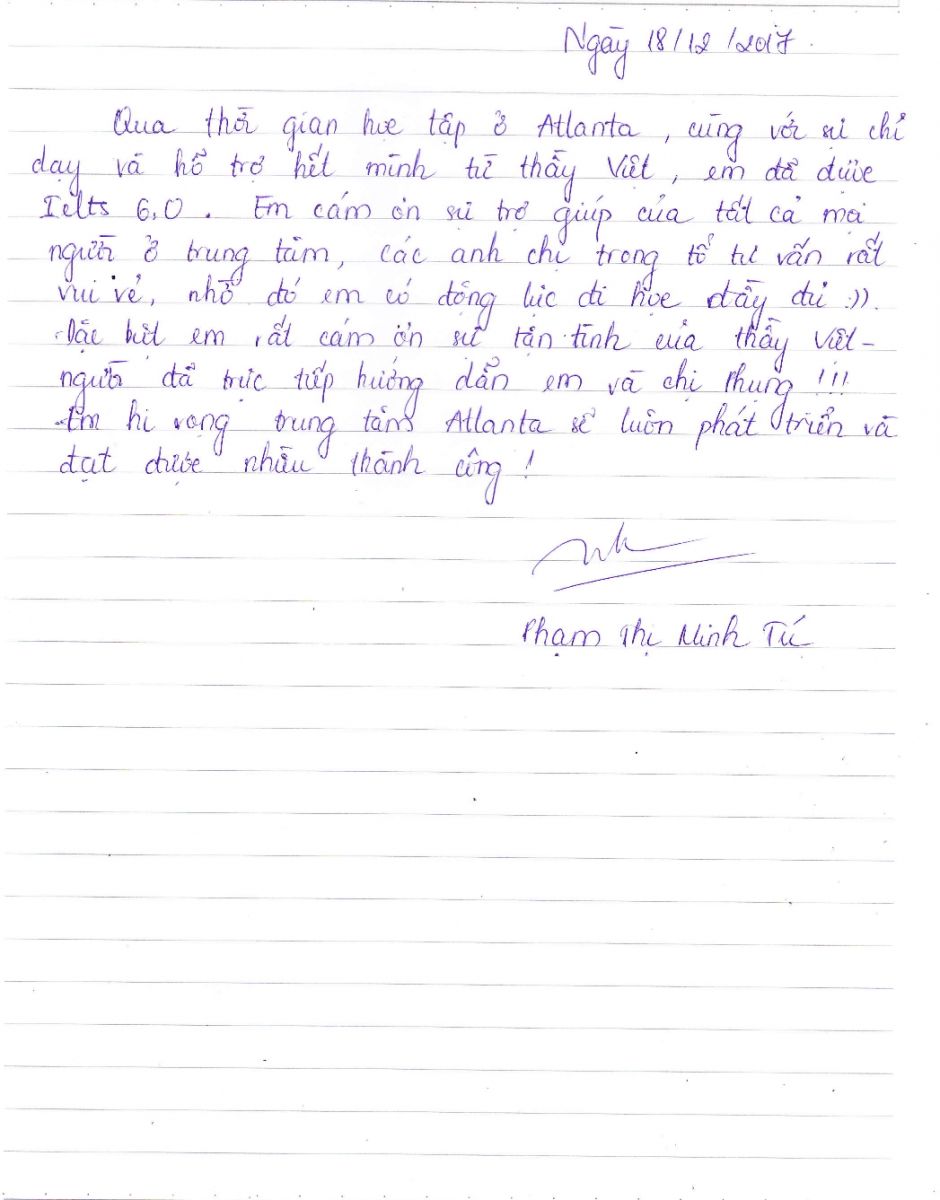 Ngày 18/12/2017.
Qua thời gian học tập ở Atlanta, cùng với sự chỉ
dạy và hổ trợ hết mình từ thầy Việt, em đã được
Ielts 6.0. Em cám ơn sự trợ giúp của tất cả mọi
người ở trung tâm, các anh chị trong tổ tư vấn rất
vui vẻ, nhờ đó em có động lực đi học đầy đủ :)).
Đặc biệt em rất cám ơn sự tận tình của thầy Việt -
người đã trực tiếp hướng dẫn em và chị Phụng !!!
Em hi vọng trung tâm Atlanta sẽ luôn phát triển và
đạt được nhiều thành công !
Phạm Thị Minh Tú